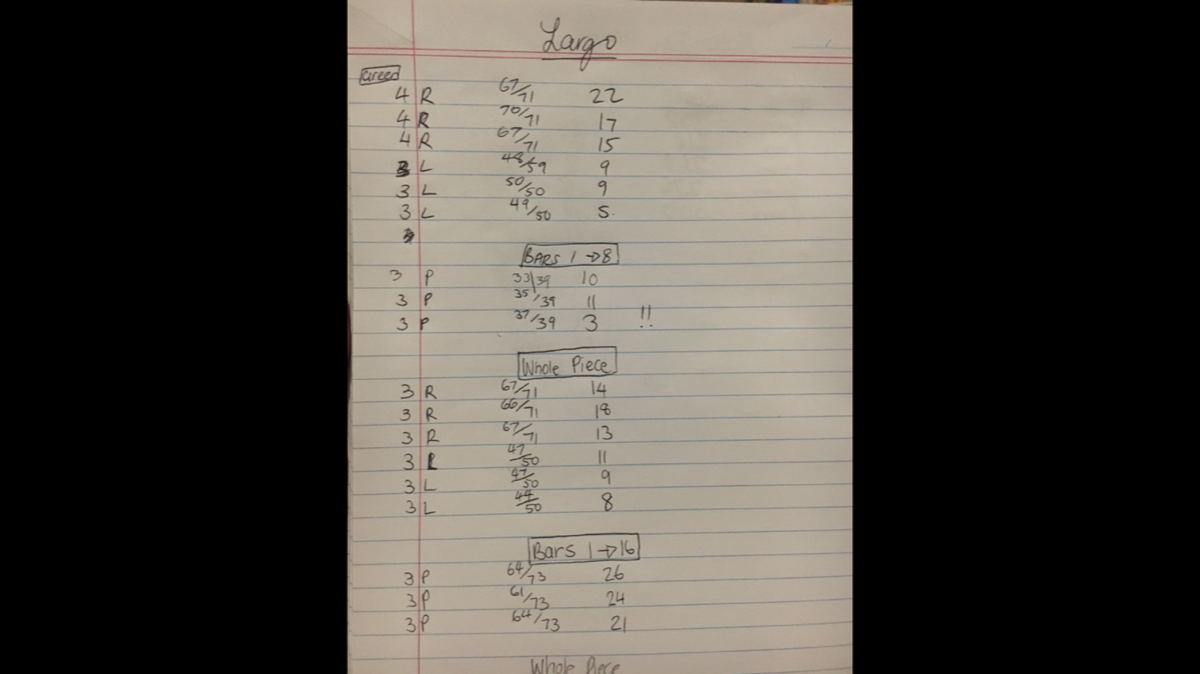 Largo
Green
4 R 67/71 22
4 R 70/71 17
4 R 67/71 15
3 L 48/59 9
3 L 50/50 9
3 L 49/50 5.
3
BARS 1 → 8
3 P 33/39 10
3 P 35/39 11
3 P 37/39 3 !!
Whole Piece
3 R 67/71 14
3 R 66/71 18
3 R 67/71 13
3 L 47/50 11
3 L 47/50 9
3 L 44/50 8
Bars 1 → 16
3 P 64/73 26
3 P 61/73 24
3 P 64/73 21
Whole Piece